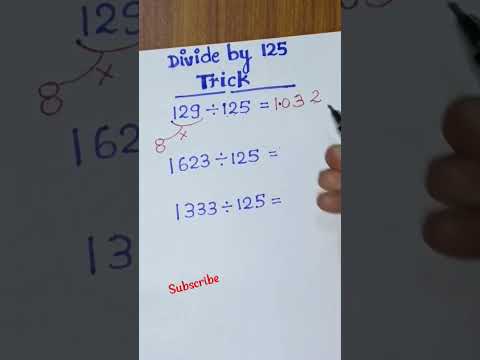 Divide by 125
Trick
129 ÷ 125 = 1.032
8 ×
1623 ÷ 125 =
1333 ÷ 125 =
Subscribe
129
×
8
162
133